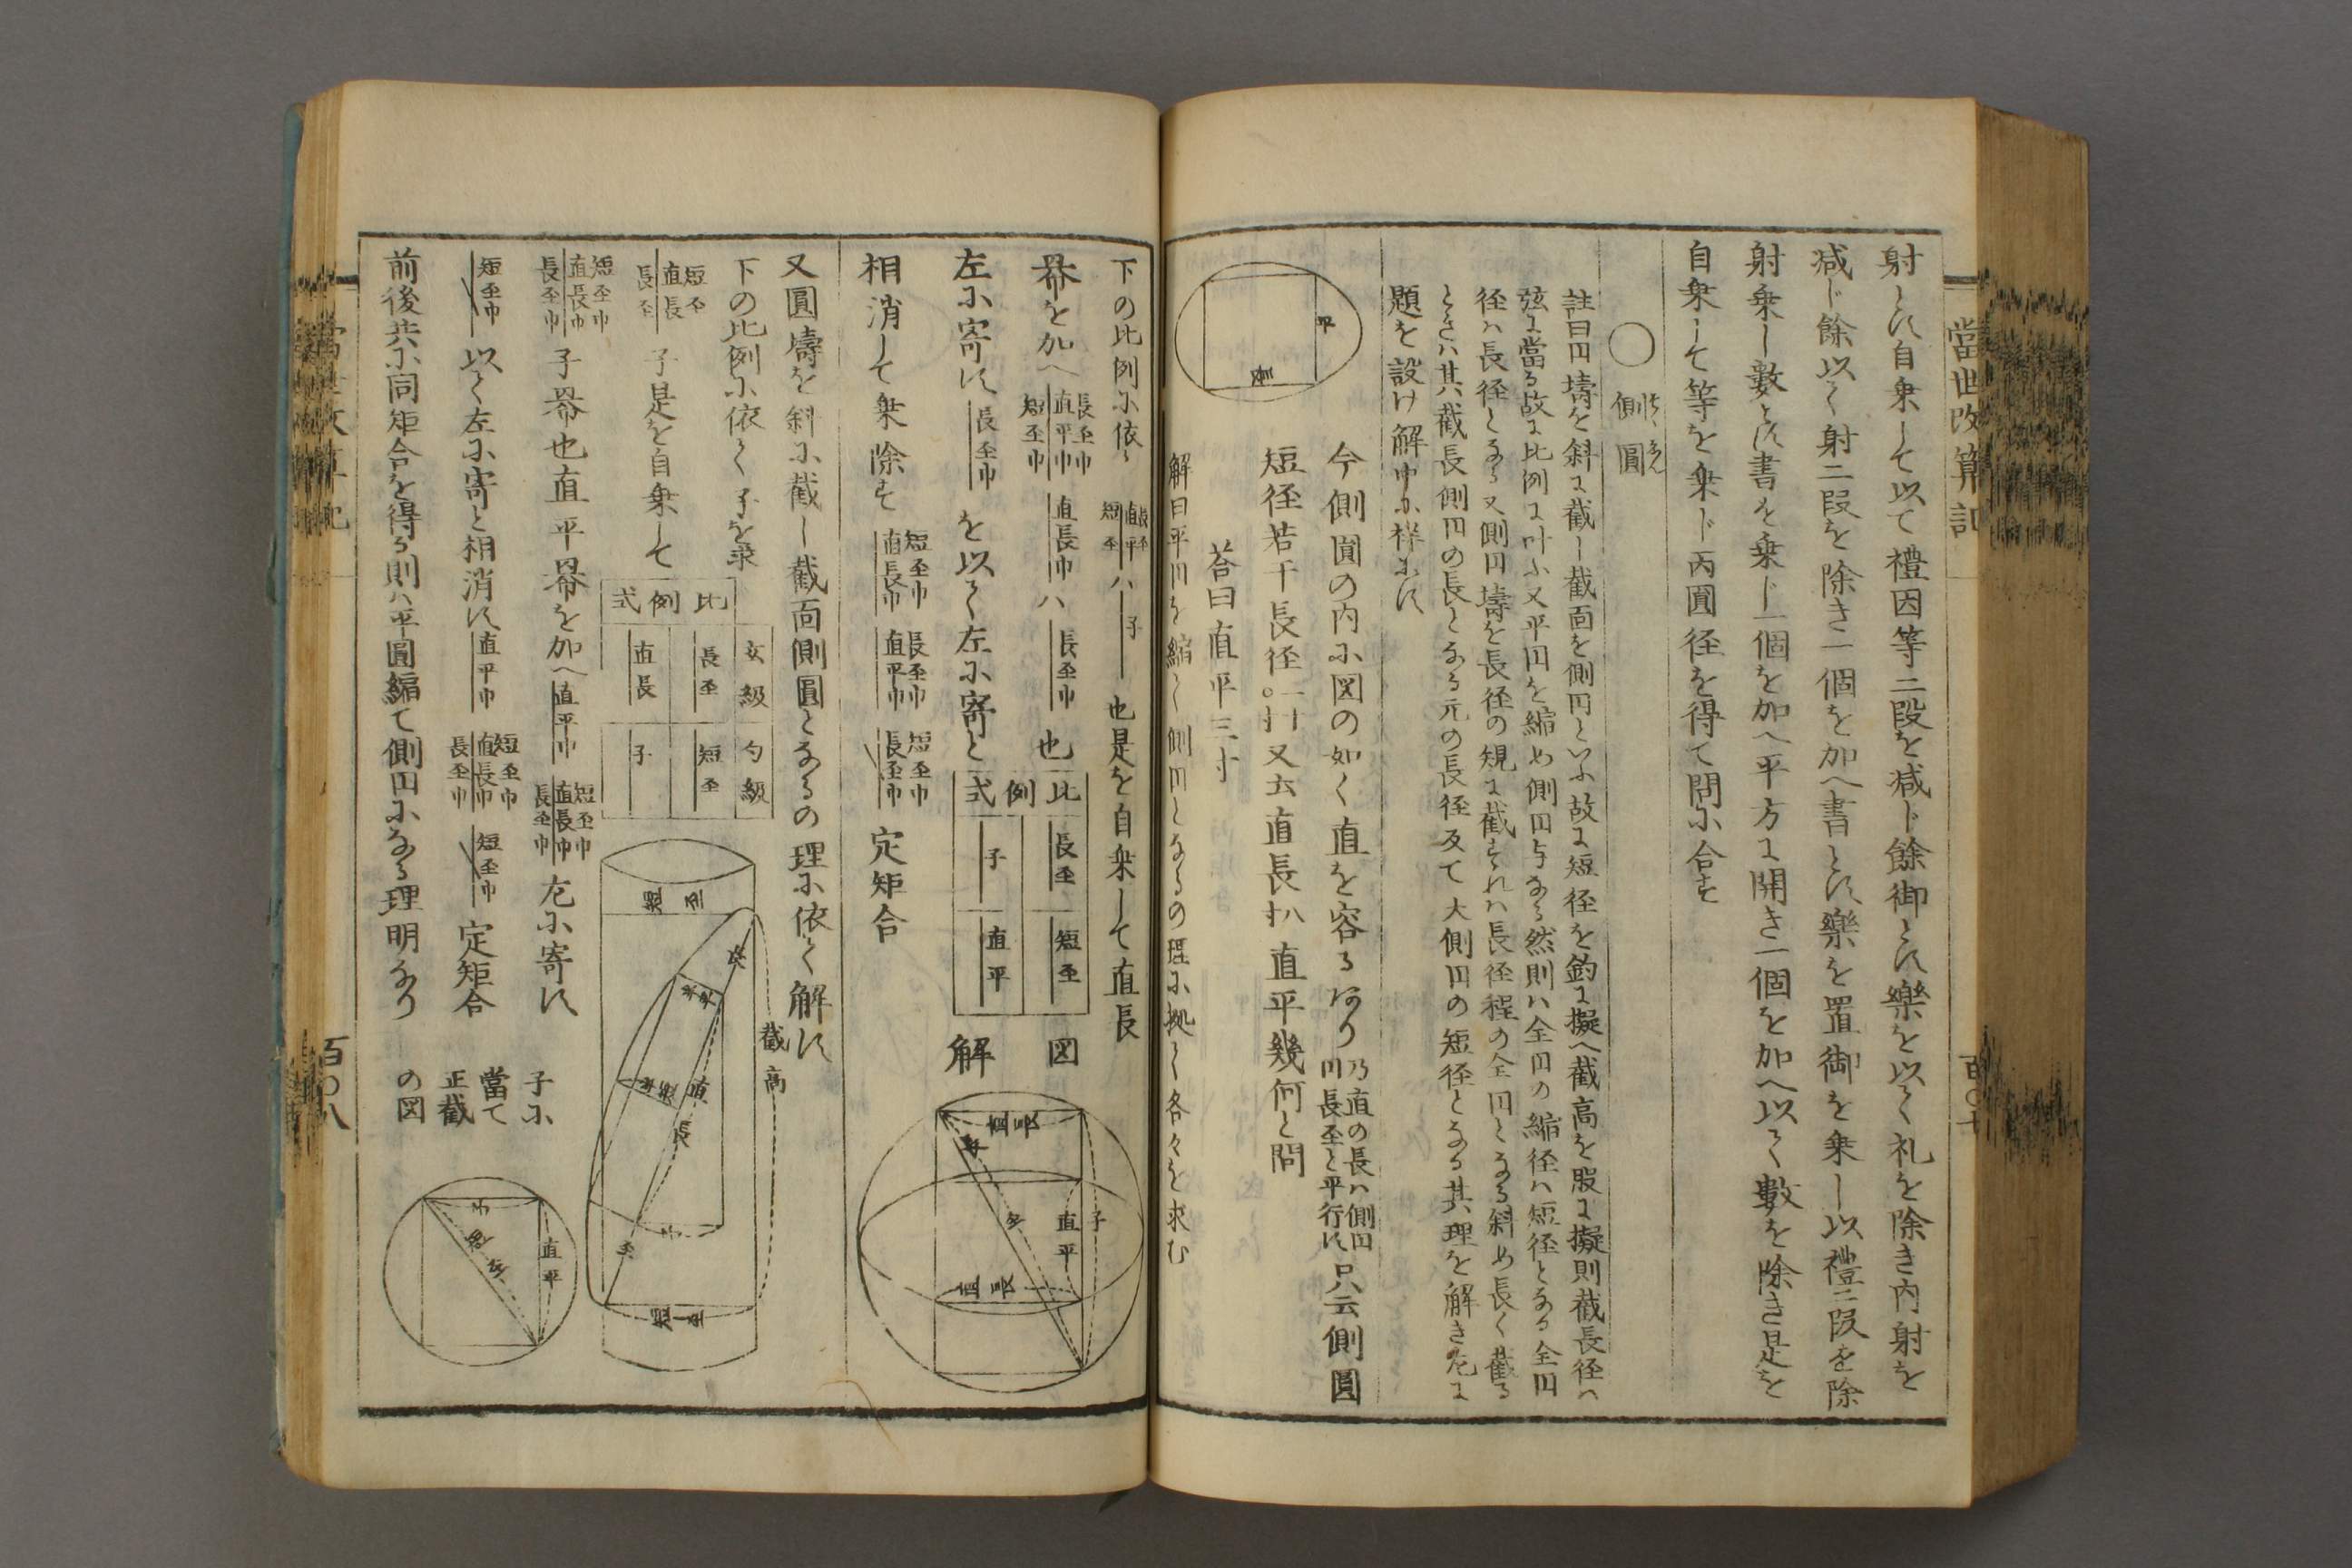 當世改算記
射とし自乗して以て禮因等二段を減じ餘御とし樂を以て礼を除き内射を
減じ餘以て射二段を除き一個を加へ書とし樂を置御を乗し以禮二段を除
射乗し數とし書を乗じ一個を加へ平方に開き一個を加へ以て數を除き是を
自乗して等を乗じ丙圓径を得て問に合す
○側圓
註曰円壔を斜に截し截面を側円といふ故に短径を釣に擬へ截高を股に擬則截長径ハ
弦に當る故に比例に叶ふ又平円を縮め側円与なる然則ハ全円の縮径ハ短径となる全円
径ハ長径となる又側円壔を長径の規に截すれハ長径程の全円となる斜め長く截る
ときハ其截長側円の長となる元の長径反て大側円の短径となる其理を解き左に
題を設け解巾に祥にす
平
長
今側圓の内に図の如く直を容るあり
乃直の長ハ側円
円長至と平行す
只云側圓
短径若干長径
又云直長
直平幾何と問
荅曰直平三寸
解曰平円を縮て側円となるの理に拠て各々を求む
下の比例に依て
長至
直平
短至
ハ
子
也是を自乗して直長
冪を加へ
長至巾
直平巾
短至巾
直長巾
ハ
長至巾
也
左に寄す
長至巾
を以て左に寄と
相消して乗除す
短至巾
直長巾
長至巾
直平巾
短至巾
長至巾
定矩合
比例式
長至
短至
子
直平
図
解
直長
子
直平
直長
又圓壔を斜に截し截面側圓となるの理に依て解す
下の比例に依て子を求
短至
直長
長至
子是を自乗して
短至巾
直長巾
長至巾
子冪也直平冪を加へ
直平巾
短至巾
直長巾
長至巾
左に寄す
短至巾
以て左に寄と相消す
直平巾
短至巾
直長巾
長至巾
短至巾
定矩合
前後共に同矩合を得る則ハ平圓縮て側円になる理明なり
比例式
玄級
勾級
長至
短至
直長
子
截高
短至
直長
子
短至
子に
當て
正截
の図
子
直平
百〇八